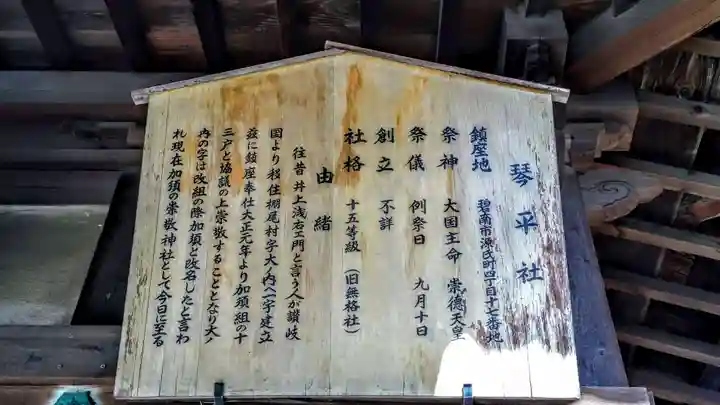 琴平社
鎮座地 碧南市源氏町四丁目十七番地
祭神 大国主命 崇德天皇
祭儀 例祭日 九月十日
創立 不詳
社格 十五等級(旧無格社)
由緒
往昔井上浅右ヱ門と言う人が讃岐
国より移住棚尾村字大ノ内へ一宇建立
茲に鎮座奉仕大正元年より加須組の十
三戸と協議の上崇敬することとなり大ノ
内の字は改組の際加須と改名したと言わ
れ現在加須の崇敬神社として今日に至る